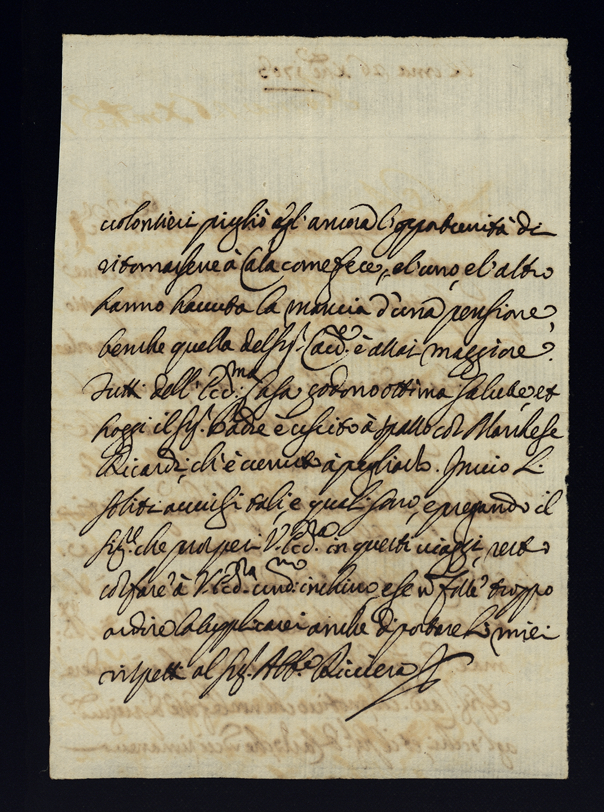 volontieri pigliò egl'ancora l'opportunità di
ritornassene à Casa come fece, el'uno, el'altro
hanno havuta la mancia d'una pensione,
benche quella del Sig.r Card.le è assai maggiore.
Tutti dell'Ecc.ma Casa godono ottima salute, et
hoggi il Sig.r Padre è uscito à spasso col Marchese
Ricardi, ch'è venuto à pigliarlo. Invio li
soliti avvisi tali e quali sono, e pregando il
Sig.re che prosperi V. Ecc.za in questi viaggi, resto
col fare à V. Ecc.za um.mo inchino, e se n' fosse troppo
ardire la supplicarei anche di portare li miei
rispetti al Sig.r Abb.e Riviera